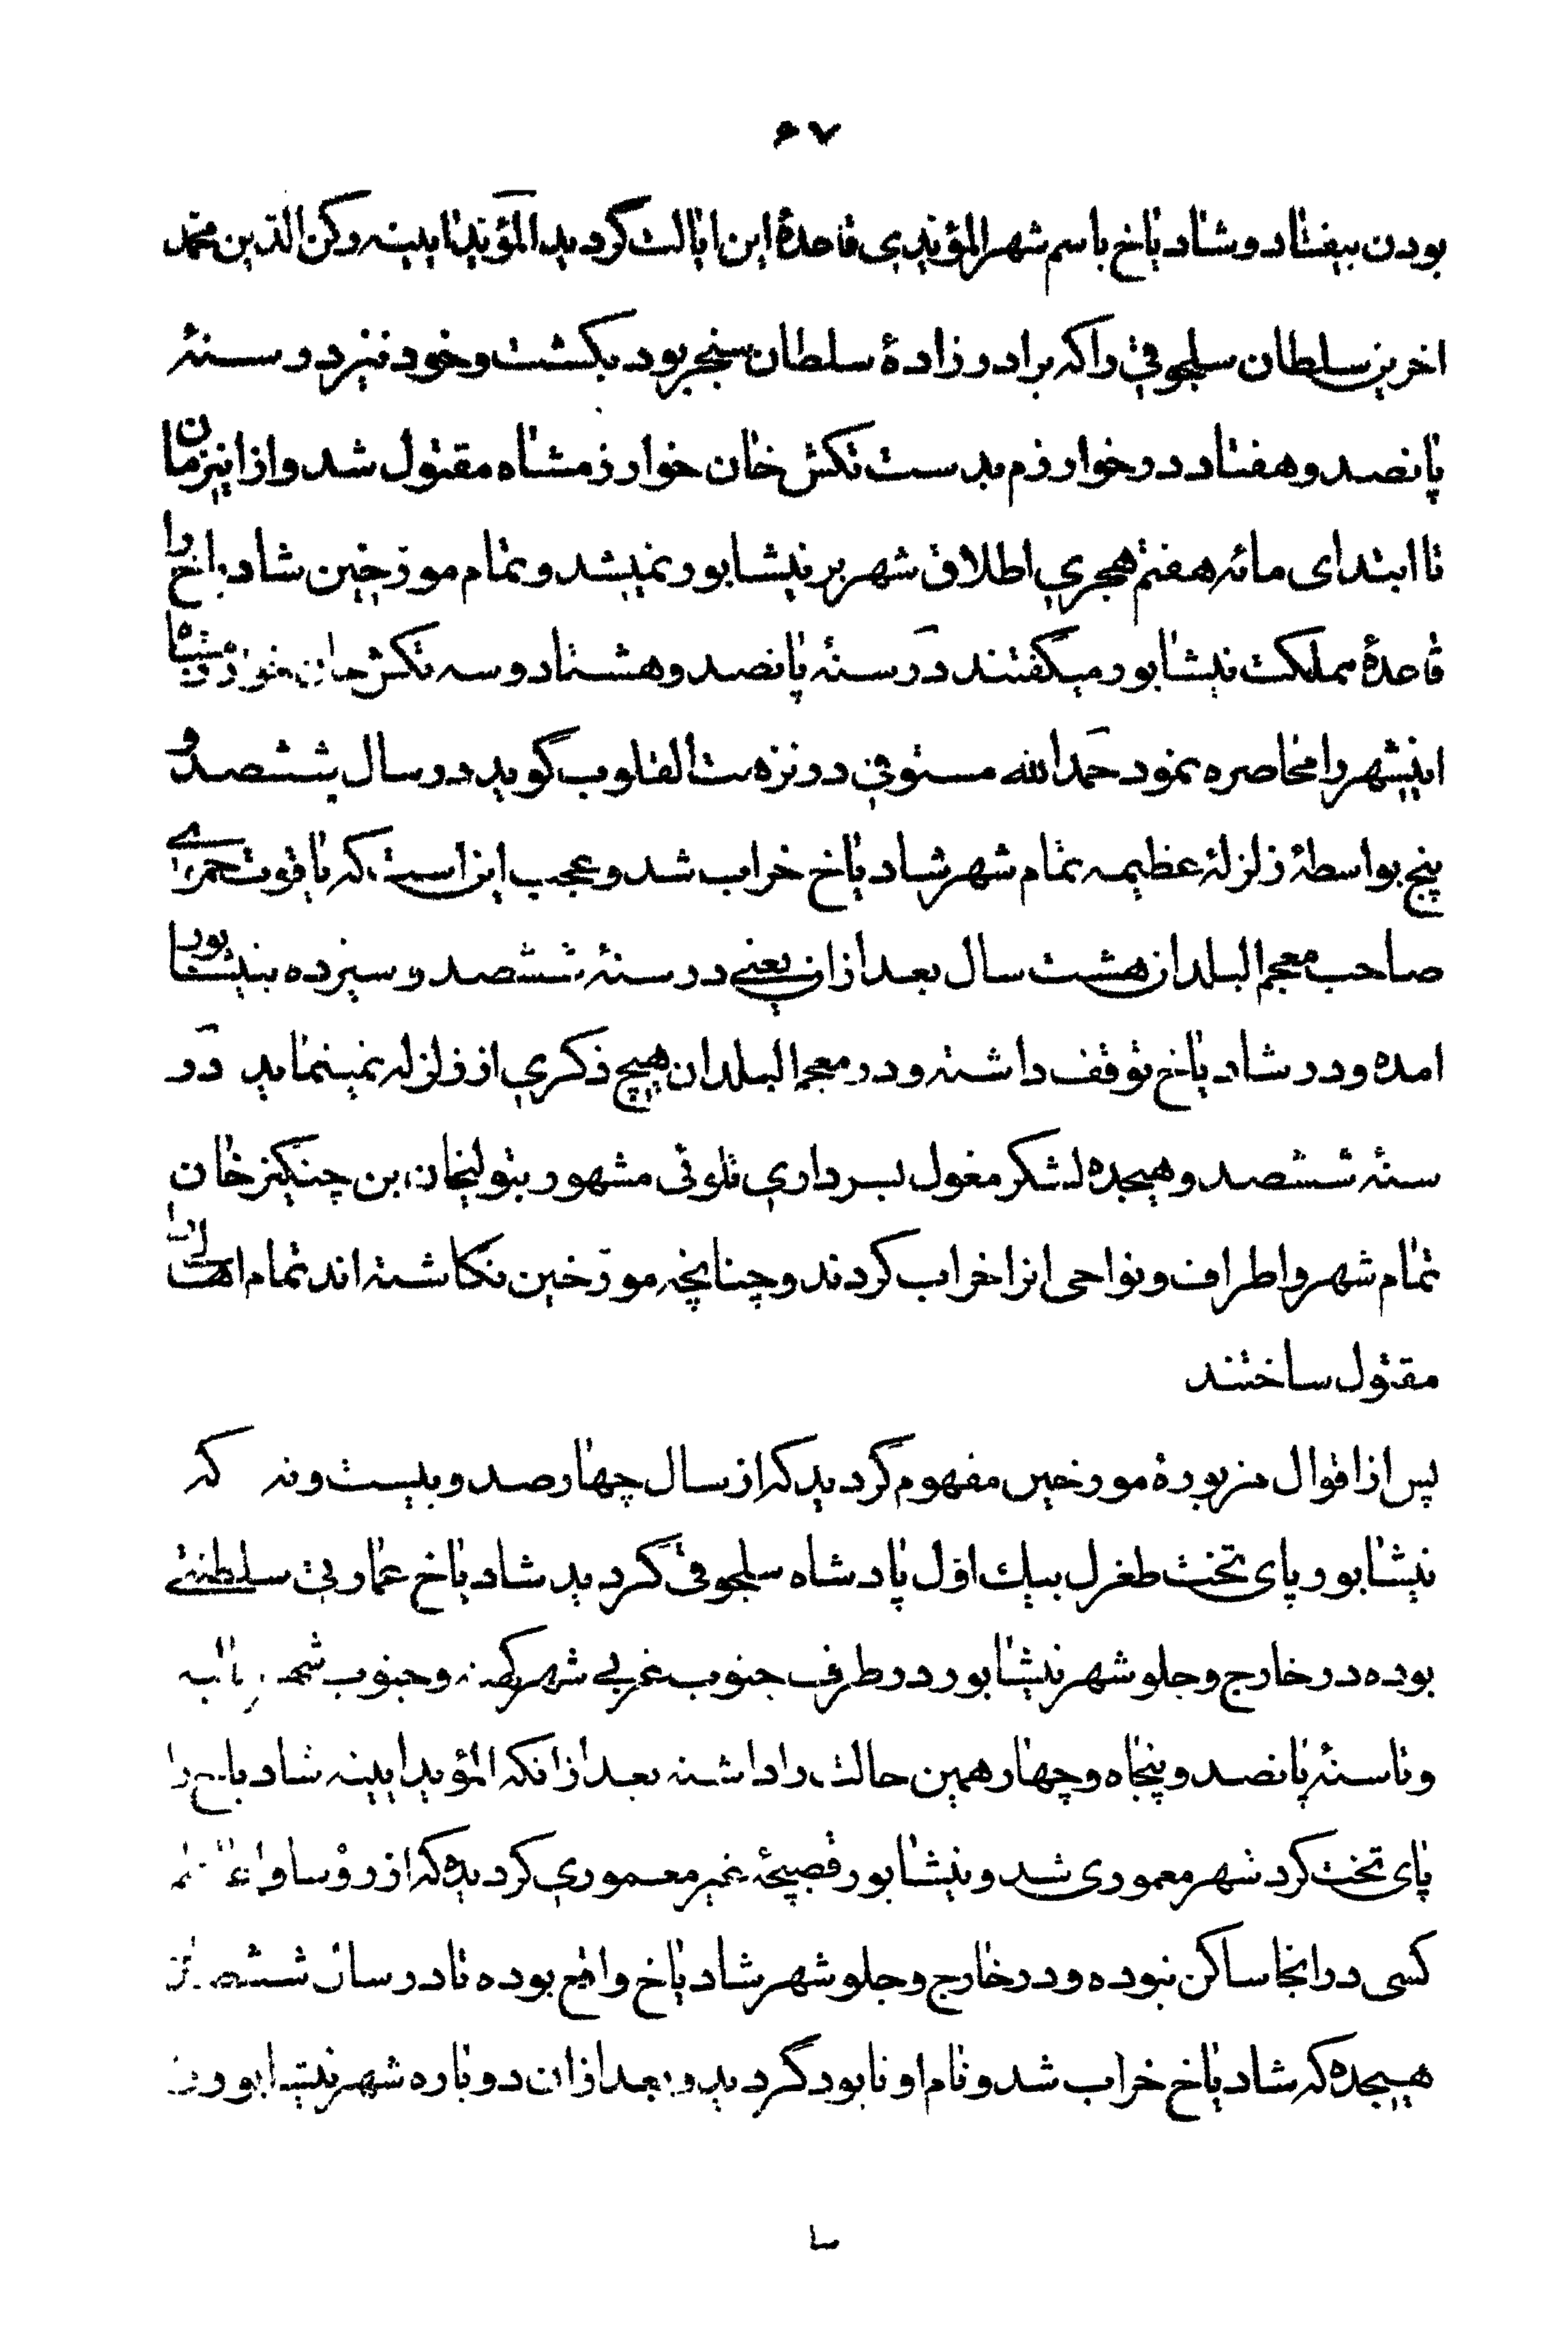 ۶۷
بودن بیفتاد و شاد یاخ باسم شهر المؤیدی قاعدهٔ این ایالت گردید المؤید ایینه رکن الدین محمد
اخرین سلطان سلجوقی را که برادر زادهٔ سلطان سنجر بود بکشت و خود نیز در سنهٔ
پانصد و هفتاد در خوارزم بدست تکش خان خوارزمشاه مقتول شد و از اینزمان
تا ابتدای مائه هفتم هجری اطلاق شهر بر نیشابور نمیشد و تمام مورّخین شاد یاخ را
قاعدهٔ مملکت نیشابور میگفتند در سنهٔ پانصد و هشتاد و سه تکش خان
اینشهر را محاصره نمود حمد الله مستوفی در نزهت القلوب گوید در سال ششصد و
پنج بواسطهٔ زلزلهٔ عظیمه تمام شهر شاد یاخ خراب شد و عجیب این است که یاقوت حمری
صاحب معجم البلدان هشت سال بعد ازان یعنی در سنهٔ ششصد و سیزده بنیشابور
امده و در شاد یاخ توقف داشته و در معجم البلدان هیچ ذکری از زلزله نمینماید در
سنهٔ ششصد و هیجده لشکر مغول بسرداری تلوئی مشهور بتولیخان بن چنگیز خان
تمام شهر و اطراف و نواحی انرا خراب کردند و چنانچه مورّخین نگاشته اند تمام اهالی را
مقتول ساختند
پس از اقوال مزبورهٔ مورخین مفهوم گردید که از سال چهارصد و بیست و نه که
نیشابور پای تخت طغرل بیك اوّل پادشاه سلجوقی گردید شاد یاخ عمارتی سلطنتی
بوده در خارج و جلو شهر نیشابور در طرف جنوب غربی شهر کهنه و جنوب
و تا سنهٔ پانصد و پنجاه و چهار همین حالت را داشته بعد ازانکه المؤید ایینه شاد یاخ را
پای تخت کرد شهر معموری شد و نیشابور قصبچهٔ غیر معموری گردیده که از رؤسا و
کسی در انجا ساکن نبوده و در خارج و جلو شهر شاد یاخ واقع بوده تا در سال ششصد
هیجده که شاد یاخ خراب شد و نام او نابود گردید و بعد ازان دوباره شهر نیشابور